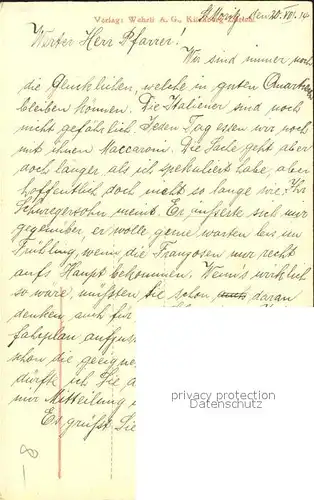 Verlag: Wehrli A. G., Kilchberg-Zürich
St. Moritz, den 20. VIII. 14
Werter Herr Pfarrer!
Wir sind immer noch
die Glücklichen, welche in guten Quartieren
bleiben können. Die Italiener sind noch
nicht gefährlich. Jeden Tag essen wir noch
mit ihnen Maccaroni. Die Sache geht aber
doch länger, als ich spekuliert habe, aber
hoffentlich doch nicht so lange wie Ihr
Schwiegersohn meint. Er äusserte sich mir
gegenüber, er wolle gerne warten bis im
Frühling, wenn die Franzosen nur recht
aufs Haupt bekommen. Wenn's wirklich
so wäre, müssten Sie schon auch daran
denken, auch für
fahrplan aufzus
schon die geeigne
dürfte ich Sie
mir Mitteilung
Es grüßt Sie
privacy protection
Datenschutz
8